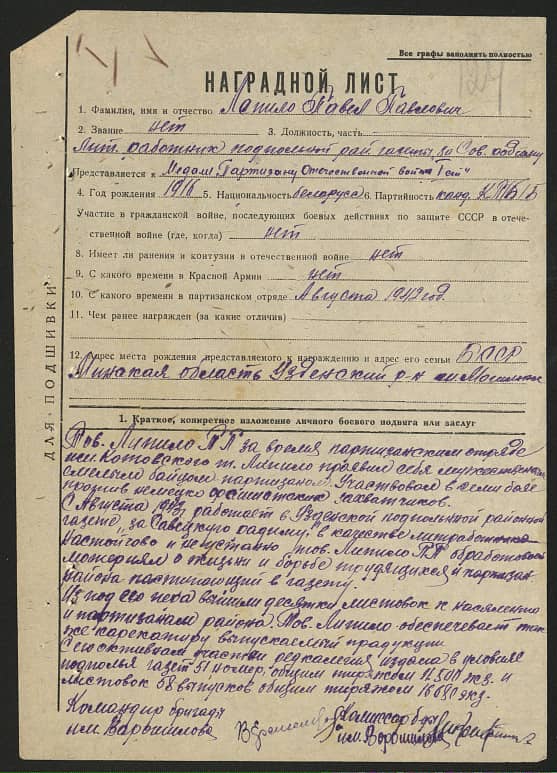 Все графы заполнять полностью
НАГРАДНОЙ ЛИСТ
1. Фамилия, имя и отчество Лапило Павел Павлович
2. Звание нет 3. Должность, часть
Лит. работник подпольной рай. газеты „За Сов. родзіму
Представляется к Медали Партизану Отечественной войны I ст"
4. Год рождения 1916 5. Национальность беларусс 6. Партийность канд. КП/б/Б
Участие в гражданской войне, последующих боевых действиях по защите СССР в отече-
ственной войне (где, когда) нет
8. Имеет ли ранения и контузии в отечественной войне нет
9. С какого времени в Красной Армии нет
10. С какого времени в партизанском отряде Августа 1942 год.
11. Чем ранее награжден (за какие отличия)
12. Адрес места рождения представляемого к награждению и адрес его семьи БССР
Минская область Узденский р-н
ДЛЯ ПОДШИВКИ
1. Краткое, конкретное изложение личного боевого подвига или заслуг
Тов. Липило ПП за время партизанским отряде
им. Котовского т. Липило проявил себя мужественным
смелым бойцом партизаном. Участвовал в семи боях
против немецко фашистских захватчиков.
С Августа 1943 работает в Узденской подпольной районной
газете „за Савецкую радзиму" в качестве литработника
настойчево и неустанно тов. Липило ПП обработовал
матерьял о жизни и борьбе трудящихся и партизан
района поступающий в газету.
Из под его пера вышли десятки листовок к населению
и партизанам района. Тов. Липило обеспечевает так
же карекатуру выпускаемый продукции
С его активным участием редколегия издала в условиях
подполья газет 51 номер, общим тиражом 11.500 экз. и
листовок 58 выпусков общим тиражом 16 690 экз.
Командир бригады
им. Ворошилова
Комиссар б-ды
им. Ворошилова